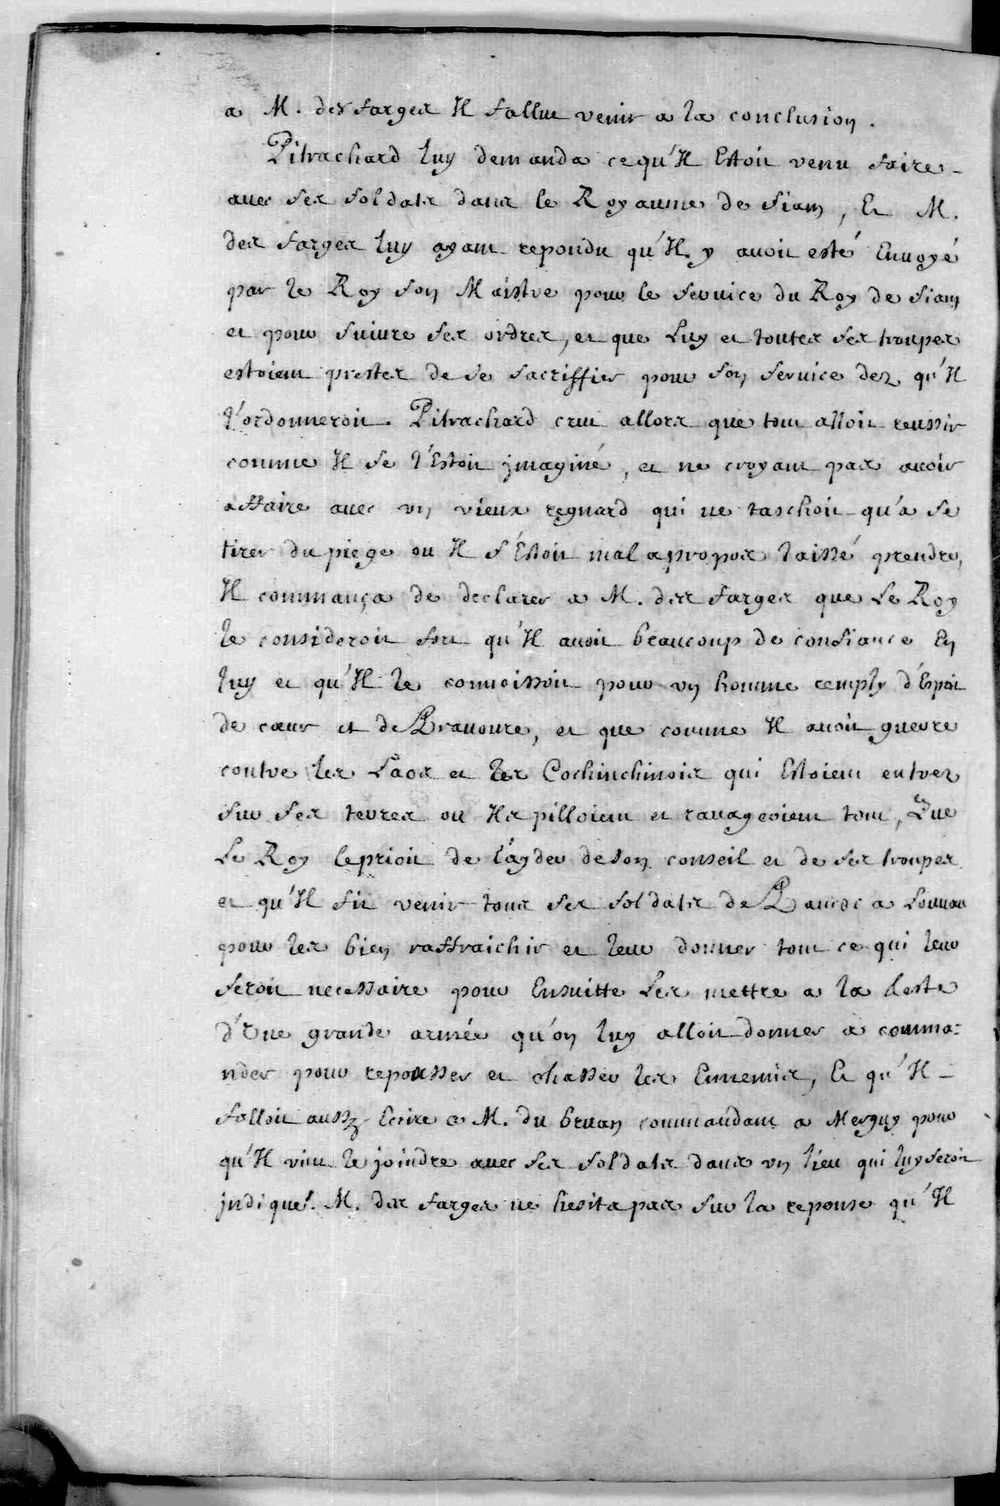 a M. des farges Il fallut venir a la conclusion.
Pitrachard luy demanda ce qu'Il Estoit venu faire
avec ses soldats dans le Royaume de siam, Et M.
des farges luy ayant repondu qu'Il y avoit esté Envoyé
par le Roy son Maistre pour le service du Roy de siam
et pour suivre ses ordres, et que Luy et toutes ses troupes
estoient prestes de se sacriffier pour son service dez qu'Il
l'ordonneroit. Pitrachard crut allors que tout alloit reussir
comme Il se l'Estoit jmaginé, et ne croyant pas avoir
affaire avec vn vieux regnard qui ne taschoit qu'a se
tirer du piege ou Il s'Estoit mal apropos laissé prendre,
Il commança de declarer a M. des farges que Le Roy
le consideroit fort qu'Il avoit beaucoup de confiance En
luy et qu'Il le connoissoit pour vn homme remply d'Esprit
de cœur et de Bravoure, et que comme Il avoit guerre
contre les Laos et les Cochinchinois qui Estoient entrez
sur ses terres ou Ils pilloient et ravageoient tout, Que
Le Roy le prioit de l'ayder de son conseil et de ses troupes
et qu'Il fit venir tous ses soldats de Bancoc a Louvau
pour les bien raffraichir et leur donner tout ce qui leur
seroit necessaire pour Ensuitte Les mettre a la teste
d'Vne grande armée qu'on luy alloit donner a comma=
nder pour repousser et chasser les Ennemis, Et qu'Il
falloit aussy Ecrire a M. du bruan commandant a Merguy pour
qu'Il vint le joindre avec ses soldats dans vn lieu qui luy seroit
jndiqué. M. des farges ne hesita pas sur la reponse qu'Il